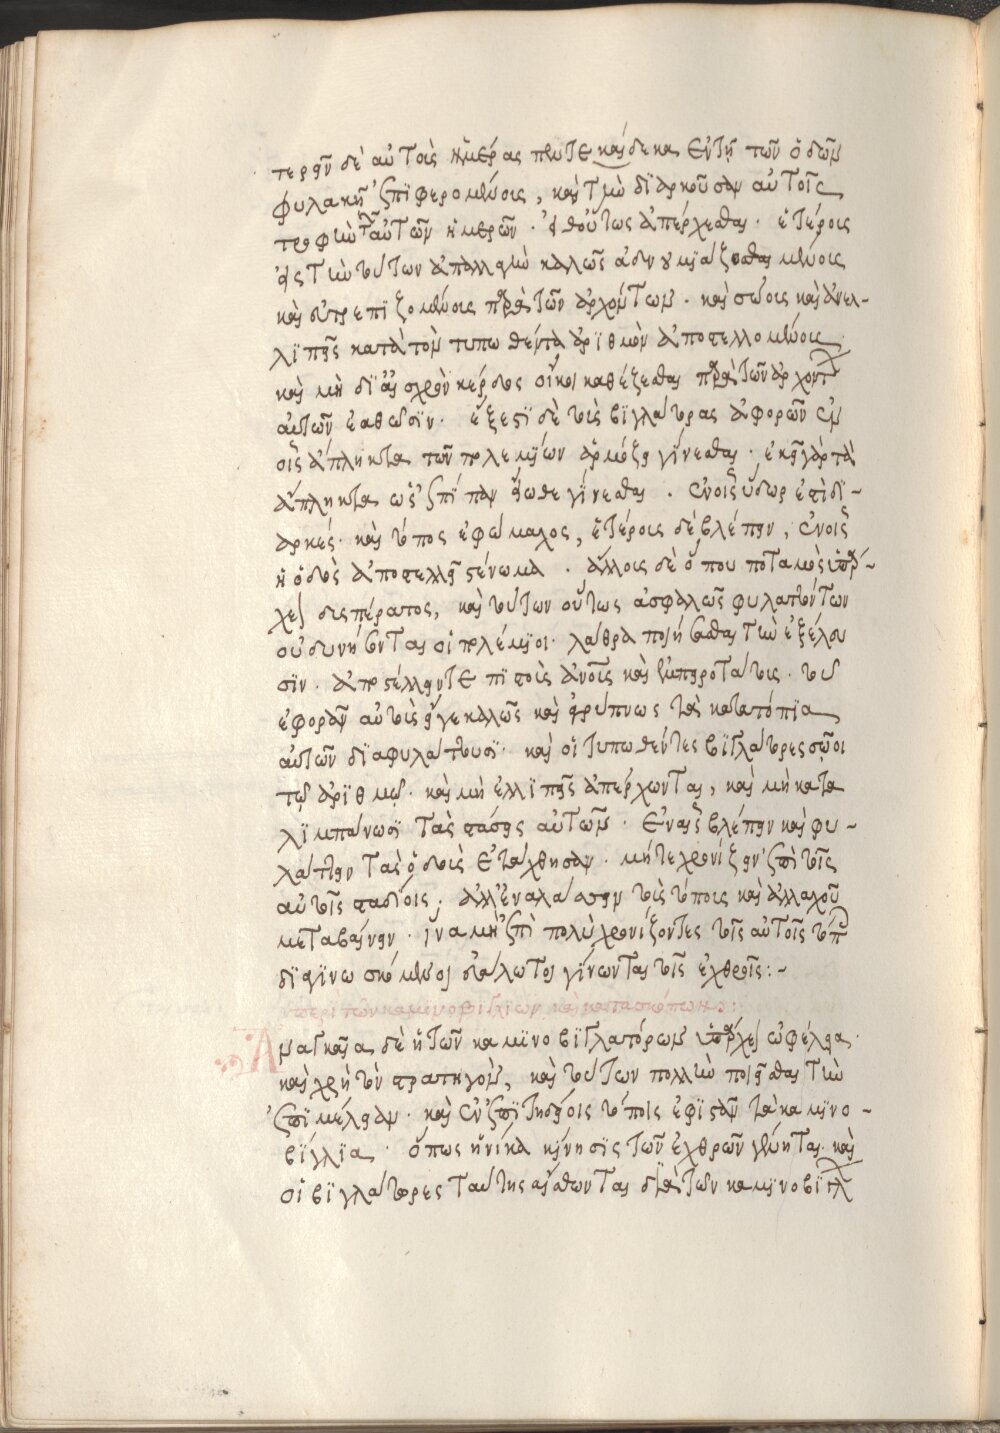 τερεῖν δὲ αὐτοὺς ἡμέρας πεντεκαίδεκα ἐν τῇ τῶν ὁδῶν
φυλακῇ ἐπιφερομένοις, καὶ τὴν διαρκοῦσαν αὐτοῖς
τροφὴν τῶν αὐτῶν ἡμερῶν. εἶθ' οὕτως ἀπέρχεσθαι. ἑτέροις
εἰς τὴν τούτων ἀπαλλαγὴν καλῶς ἀδνουμιάζεσθαι μένοις
καὶ εὐτρεπιζομένοις παρὰ τῶν ἀρχόντων. καὶ σώοις καὶ ἀνελ-
λιπεῖς κατὰ τὸν τυπωθέντα ἀριθμὸν ἀποστελλομένοις
καὶ μὴ δι' αἰσχρὸν κέρδος οἴκοι καθέζεσθαι παρὰ τῶν ἀρχόντ
αὐτῶν ἐαθῶσιν. ἔξεστι δὲ τοὺς βιγλάτορας ἀφορῶν ἐν
οἷς ἄπληκτα τῶν πολεμίων ἁρμόζει γίνεσθαι. ἐκεῖ γὰρ τὰ
ἄπληκτα ὡς ἐπίπαν εἴωθε γίνεσθαι. ἐν οἷς ὕδωρ ἐστὶ δι-
αρκές. καὶ τόπος ἐφώμαλος, ἑτέροις δὲ βλέπειν, ἐν οἷς
ἡ ὁδὸς ἀποτελλεῖ στένωμα. ἄλλοις δὲ ὅπου ποταμὸς ὑπάρ-
χει δυσπέρατος, καὶ τούτων οὕτως ἀσφαλῶς φυλαττόντων
οὐ δυνήσονται οἱ πολέμιοι λάθρα ποιήσασθαι τὴν ἐξέλευ
σιν. ἀποστέλλειν τε πιστοὺς ἀνοὺς καὶ ἐμπειροτάτους. τοῦ
ἐφορᾶν αὐτοὺς εἴγε καλῶς καὶ ἀγρύπνως τὰ κατατόπια
αὐτῶν διαφυλάττουσι. καὶ οἱ τυπωθέντες βιγλάτορες σῶοι
τῷ ἀριθμῷ. καὶ μὴ ἐλλιπεῖς ἀπέρχωνται, καὶ μὴ κατα
λιμπάνωσι τὰς στάσεις αὐτῶν. ἐν αἷς βλέπειν καὶ φυ-
λάττειν τὰς ὁδοὺς ἐτάχθησαν. μήτε χρονίζειν ἐπὶ τοῖς
αὐτοῖς σταδίοις, ἀλλ' ἐναλάσσειν τοὺς τόποις καὶ ἀλλαχοῦ
μεταβαίνειν. ἵνα μὴ ἐπὶ πολὺ χρονίζοντες τοῖς αὐτοῖς τόπ
διαγινωσκόμενοι εὐάλωτοι γίνωνται τοῖς ἐχθροῖς:-
περὶ τῶν καμινοβιγλίων καὶ κατασκόπων:
Ἀναγκαῖα δὲ ἡ τῶν καμινοβιγλατόρων ὑπάρχει ὠφέλεια.
καὶ χρὴ τὸν στρατηγὸν, καὶ τούτων πολλὴν ποιεῖσθαι τὴν
ἐπιμέλειαν. καὶ ἐν ἐπιτηδείοις τόποις ἐφιστᾶν τὰ καμινο-
βίγλια. ὅπως ἡνίκα κίνησις τῶν ἐχθρῶν γένηται. καὶ
οἱ βιγλάτορες ταύτης αἴσθωνται διὰ τῶν καμινοβιγλ